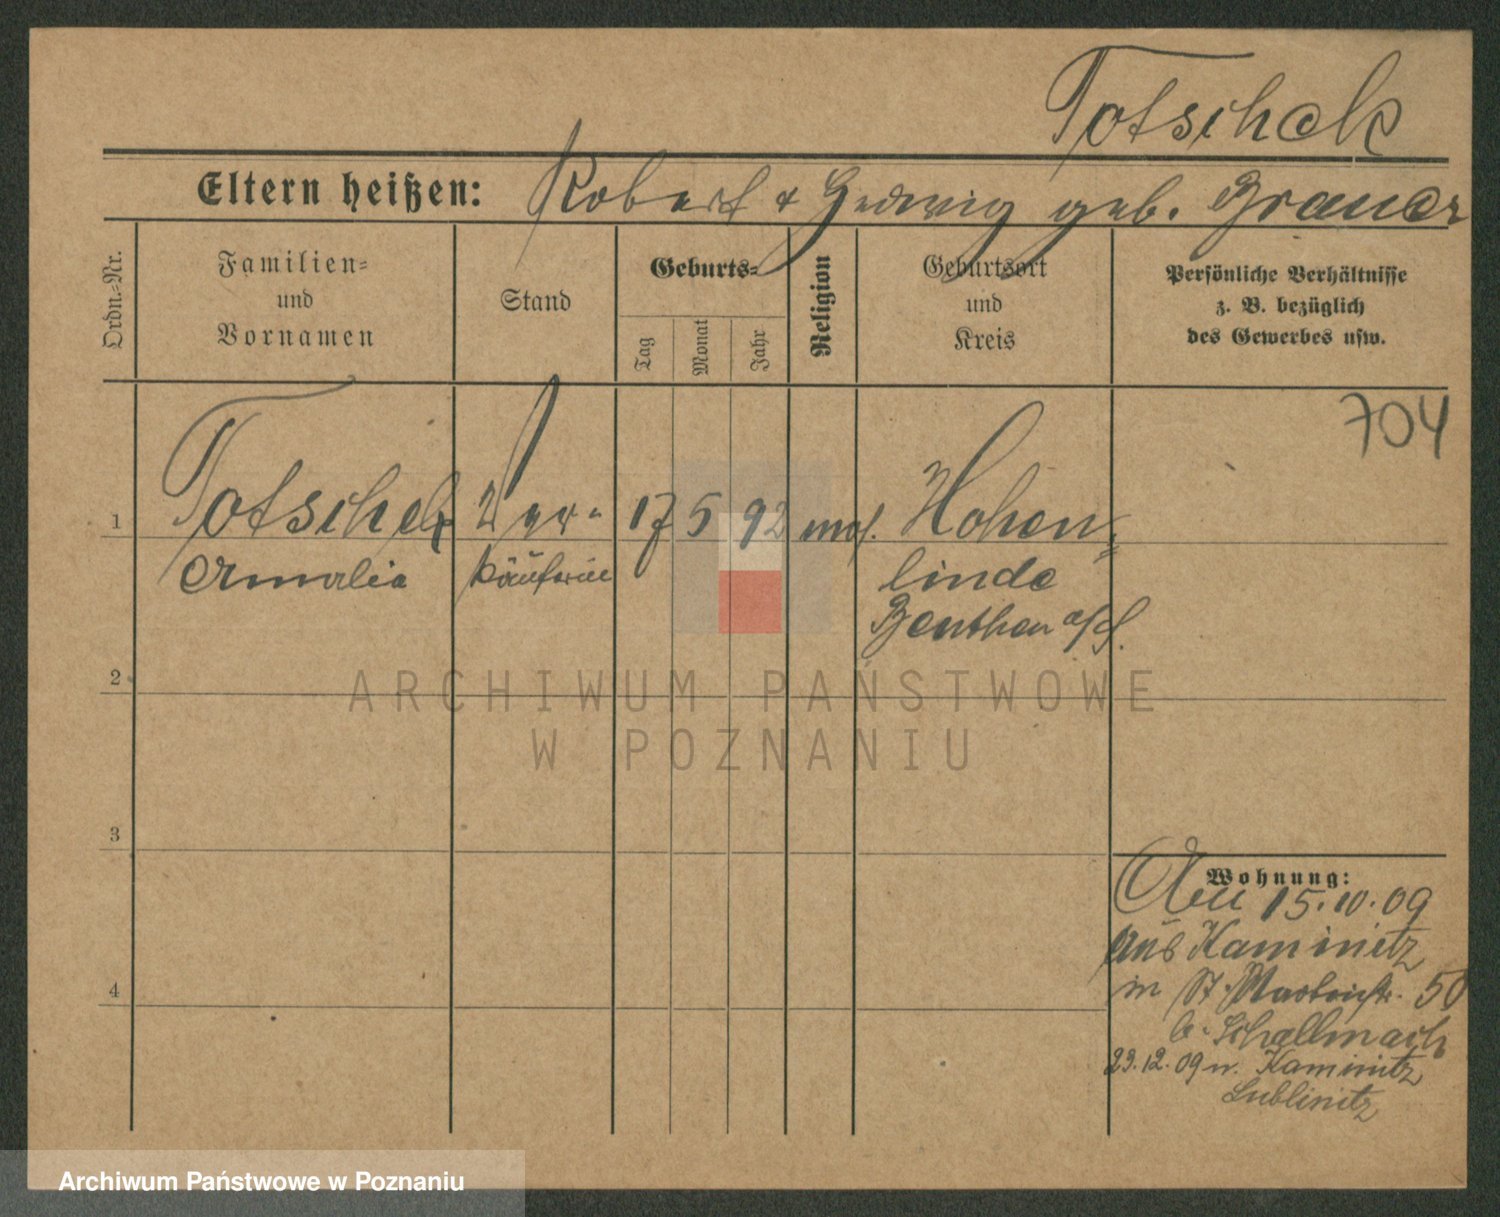 Totschek
Eltern heißen: Robert & Hedwig geb. Brauer
Ordn.-Nr.
Familien-
und
Vornamen
Stand
Geburts-
Tag
Monat
Jahr
Religion
Geburtsort
und
Kreis
Persönliche Verhältnisse
z. B. bezüglich
des Gewerbes usw.
704
1 Totschek Ver- 17 5 92 mos. Hohen-
Amalie käuferin linde
Beuthen o/S.
2
ARCHIWUM PAŃSTWOWE
W POZNANIU
3
Wohnung:
15.10.09
aus Kaminitz
in St. Martinstr. 50
b. Schallmach
23.12.09 n. Kaminitz
Lublinitz
4
Archiwum Państwowe w Poznaniu